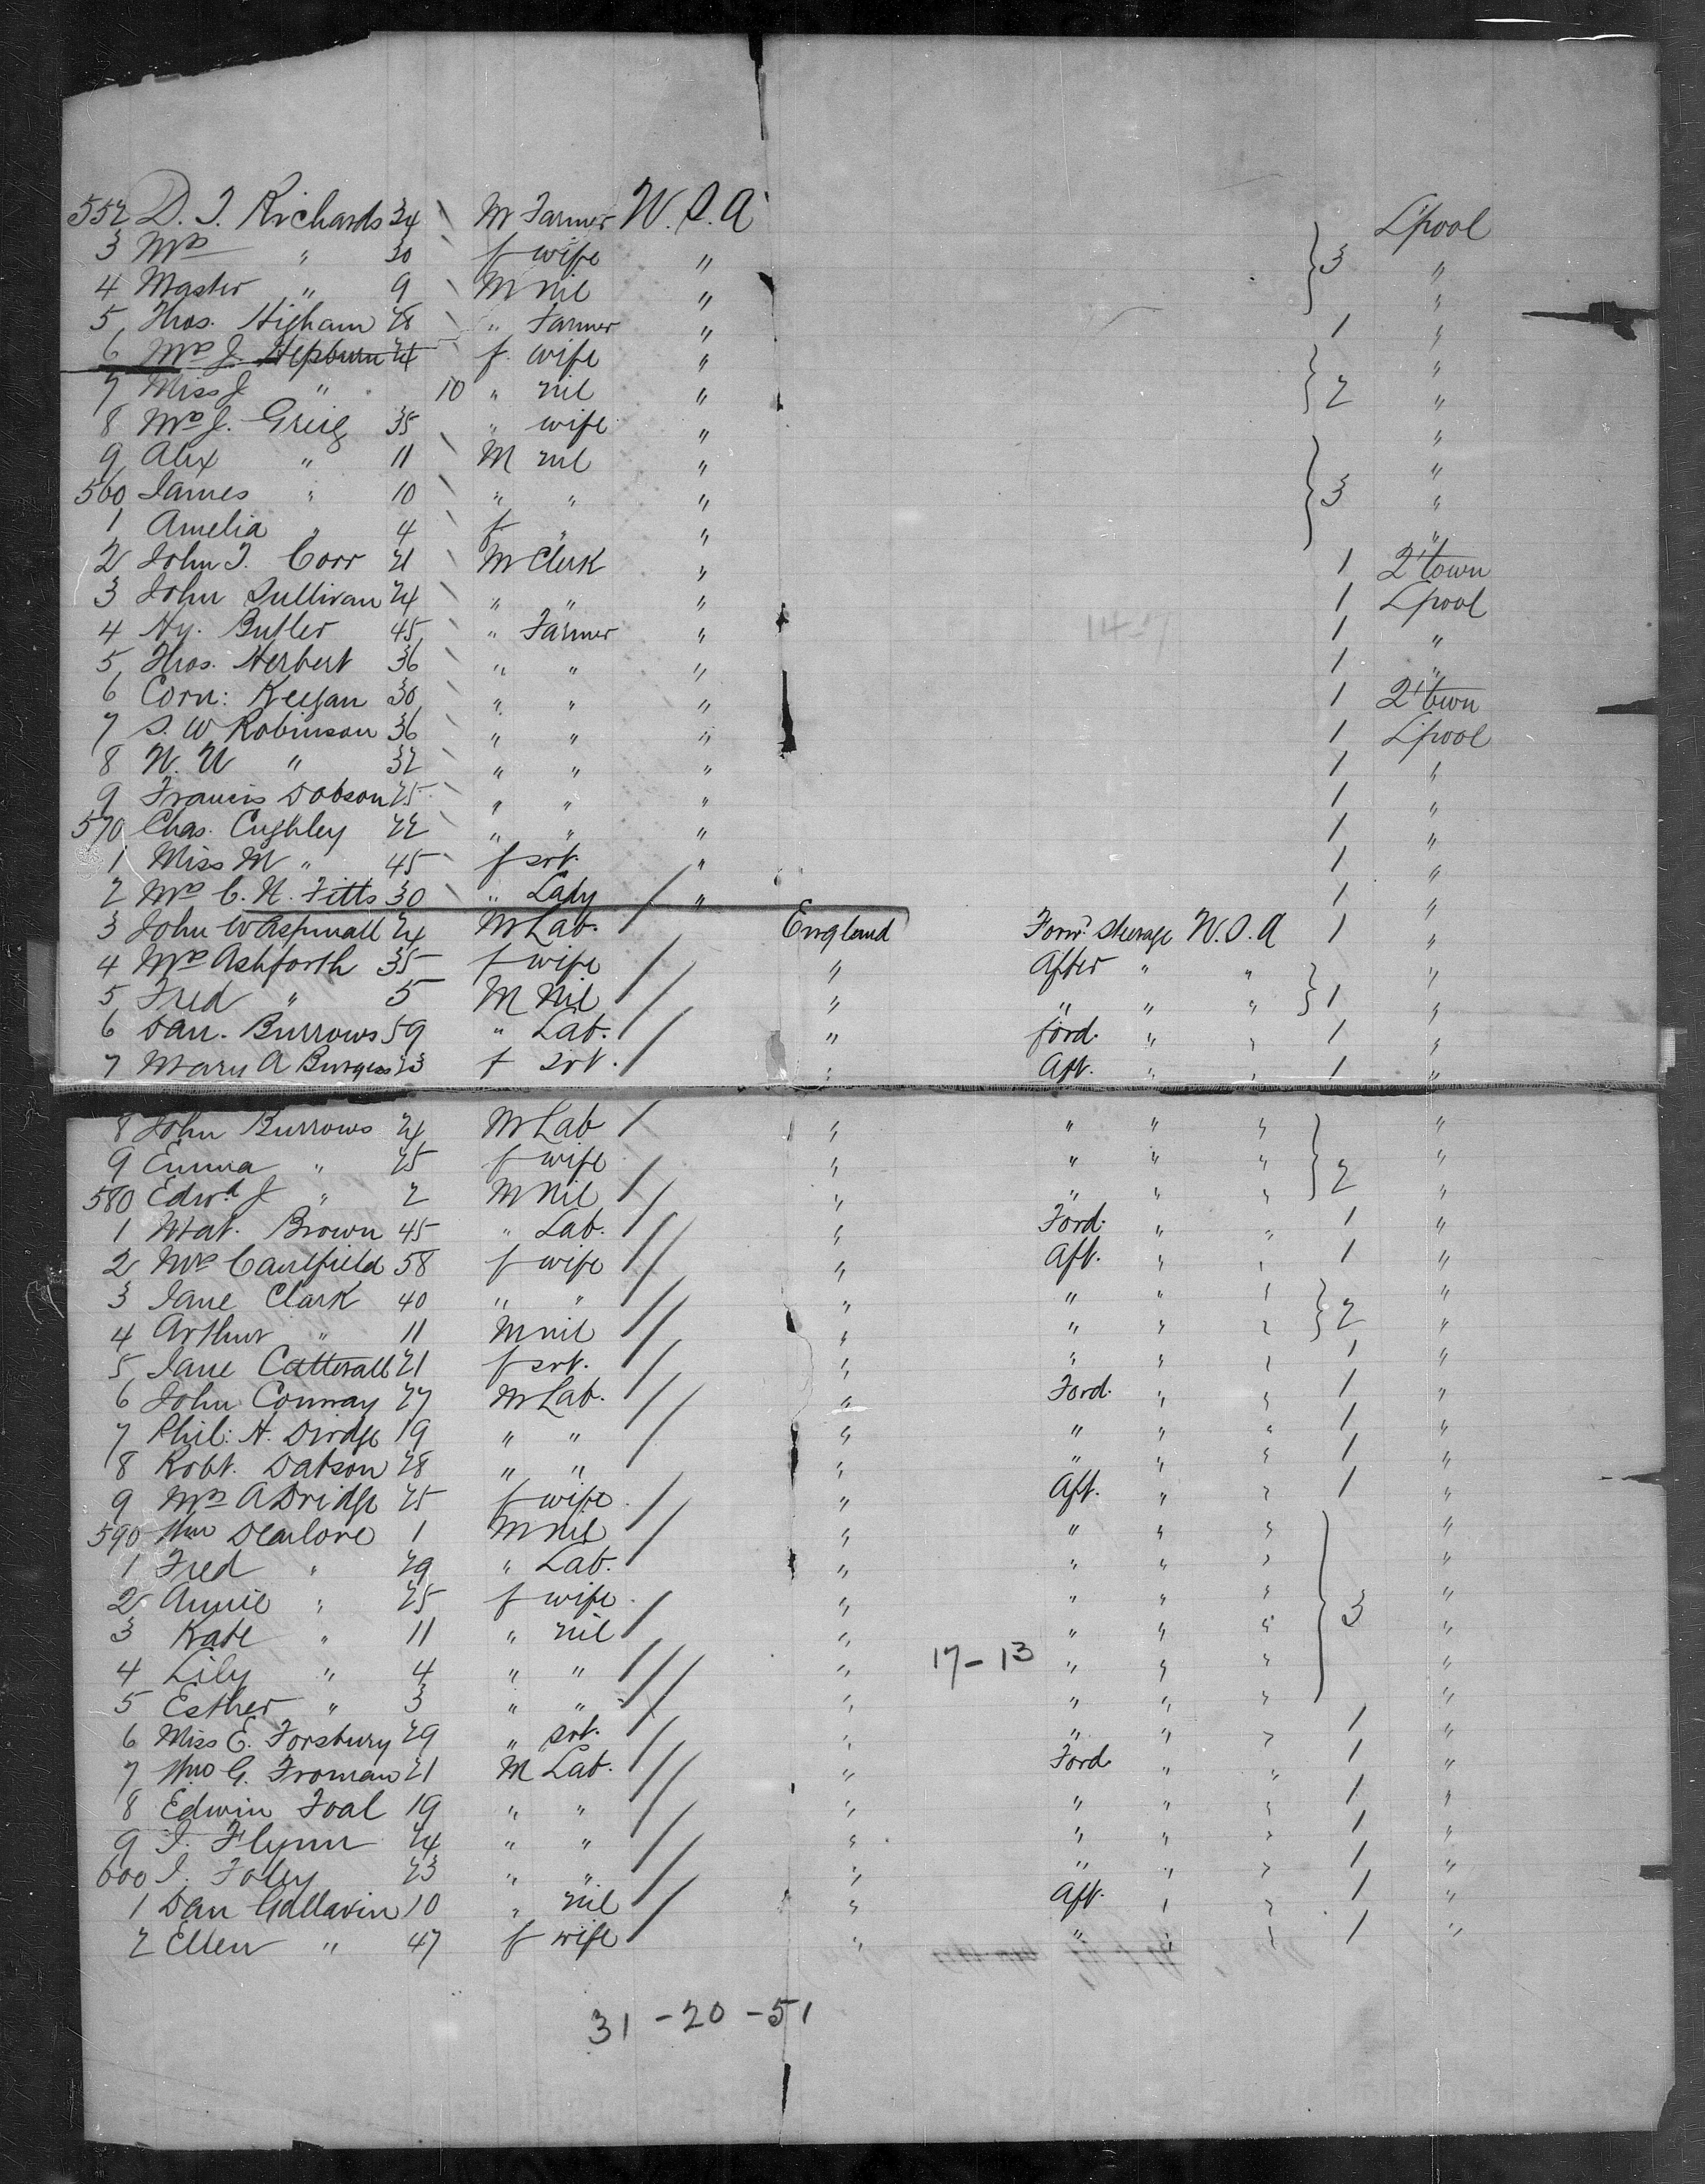 552 D. J. Richards 34 M Farmer U.S.A L'pool
3 Mrs " 30 f wife " } 3 "
4 Master " 9 M nil " "
5 Thos. Higham 28 " Farmer " 1 "
6 Mrs J. Hepburn 24 f. wife " "
7 Miss J " 10 " nil " } 2 "
8 Mrs J. Greig 35 " wife " "
9 Alex " 11 M nil " "
560 James " 10 " " " } 3 "
1 Amelia " 4 f " " "
2 John J. Corr 21 M Clerk " 1 Q'town
3 John Sullivan 24 " " " 1 L'pool
4 Hy. Butler 45 " Farmer " 1 "
5 Thos. Herbert 36 " " " 1 "
6 Corn: Keegan 30 " " " 1 Q'town
7 S. W Robinson 36 " " " 1 L'pool
8 " 32 " " " 1 "
9 Francis Dobson 25 " " " 1 "
570 Chas. Cughley 22 " " " 1 "
1 Miss M " 45 f srt. " 1 "
2 Mrs C. H. Fitts 30 " Lady " 1 "
3 John W Aspinall 24 M Lab. England Forw. steerage U.S.A 1 "
4 Mrs Ashforth 35 f wife " After " " "
5 Fred " 5 M Nil " " " " } 1 "
6 Dan. Burrows 59 " Lab. " ford. " " 1 "
7 Mary A Burgess 23 f srt. " Aft. " " 1 "
8 John Burrows 24 M Lab " " " " "
9 Emma " 25 f wife " " " " } 2 "
580 Edwd J " 2 M Nil " " " " "
1 Mat. Brown 45 " Lab. " Ford. " " 1 "
2 Mrs Caulfield 58 f wife " Aft. " " 1 "
3 Jane Clark 40 " " " " " " "
4 Arthur " 11 M nil " " " " } 2 "
5 Jane Catterall 21 f srt. " " " " 1 "
6 John Conway 27 M Lab. " Ford. " " 1 "
7 Phil: H. Dridge 19 " " " " " " 1 "
8 Robt. Datson 28 " " " " " " 1 "
9 Mrs A Dridge 25 f wife " Aft. " " 1 "
590 Wm Dearlove 1 M Nil " " " " "
1 Fred " 29 " Lab. " " " " "
2 Annie " 25 f wife " " " " "
3 Kate " 11 " nil " " " " } 3 "
4 Lily " 4 " " " 17-13 " " " "
5 Esther " 3 " " " " " " "
6 Miss E. Forsbury 29 " srt. " " " " 1 "
7 G. Froman 21 M Lab. " Ford " " 1 "
8 Edwin Foal 19 " " " " " " 1 "
9 J. Flynn 24 " " " " " " 1 "
600 J. Foley 23 " " " " " " 1 "
1 Dan Gallavin 10 " nil " Aft. " " 1 "
2 Ellen " 47 f wife " " " " 1 "
31-20-51